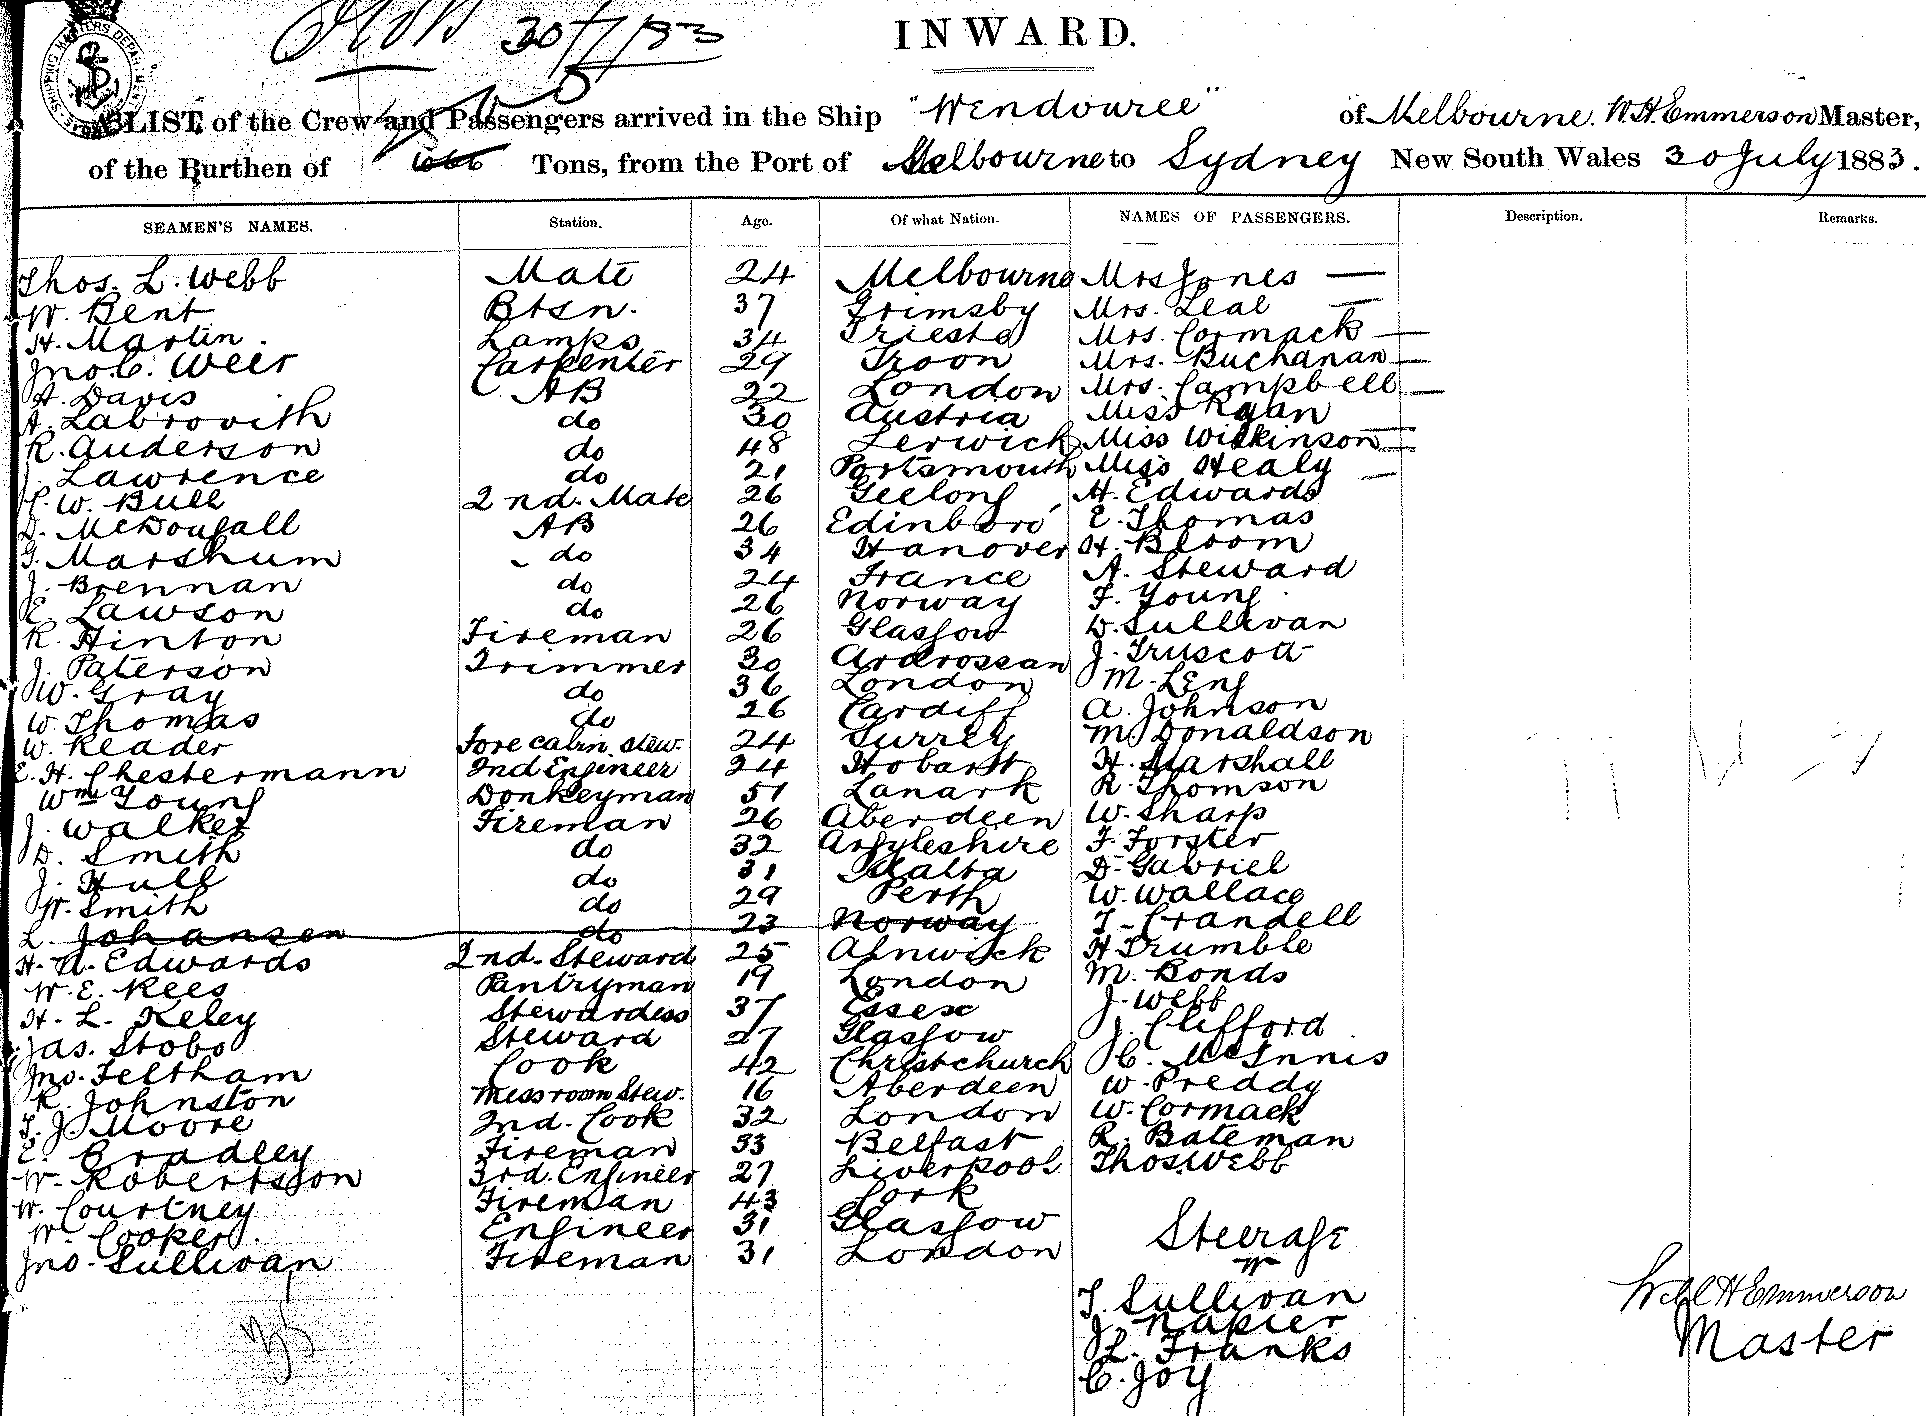 30/7/83
INWARD.
A LIST of the Crew and Passengers arrived in the Ship "Wendouree" of Melbourne. W.H. Emmerson Master,
of the Burthen of 666 Tons, from the Port of Melbourne to Sydney New South Wales 30 July 1883.
SEAMEN'S NAMES. Station. Age. Of what Nation. NAMES OF PASSENGERS. Description. Remarks.
Thos. L. Webb Mate 24 Melbourne Mrs Jones —
W. Bent Btsn. 37 Grimsby Mrs. Leal —
H. Martin. Lamps 34 Trieste Mrs. Cormack —
Jno. C. Weir Carpenter 29 Troon Mrs. Buchanan —
H. Davis AB 22 London Mrs. Campbell —
A. Labrovith do 30 Austria Miss Ryan
R. Anderson do 48 Lerwick Miss Wilkinson —
J. Lawrence do 21 Portsmouth Miss Healy —
H. W. Bull 2nd. Mate 26 Geelong H. Edwards
D. McDougall AB 26 Edinboro' E. Thomas
G. Marshum do 34 Hanover H. Bloom
J. Brennan do 24 France A. Steward
E. Lawson do 26 Norway F. Young
R. Hinton Fireman 26 Glasgow D. Sullivan
J. Paterson Trimmer 30 Ardrossan J. Truscott
W. Gray do 36 London M. Leng
W. Thomas do 26 Cardiff A. Johnson
W. Reader Fore cabin stew. 24 Surrey M. Donaldson
E. H. Chestermann 2nd Engineer 24 Hobart H. Marshall
Wm Young Donkeyman 51 Lanark R. Thomson
J. Walker Fireman 26 Aberdeen W. Sharp
D. Smith do 32 Argyleshire F. Forster
J. Hull do 31 Malta D. Gabriel
W. Smith do 29 Perth W. Wallace
L. Johansen do 23 Norway T. Crandell
H. A. Edwards 2nd. Steward 25 Alnwick H Trumble
W. E. Rees Pantryman 19 London M. Bonds
H. L. Keley Stewardess 37 Essex J. Webb
Jas. Stobo Steward 27 Glasgow J. Clifford
Jno. Feltham Cook 42 Christchurch C. McInnis
R. Johnston Messroom Stew. 16 Aberdeen W. Preddy
T. J. Moore 2nd. Cook 32 London W. Cormack
E. Bradley Fireman 33 Belfast R. Bateman
W. Robertson 3rd. Engineer 27 Liverpool Thos. Webb
W. Courtney Fireman 43 Cork
W. Cooper. Engineer 31 Glasgow Steerage
Jno. Sullivan Fireman 31 London
T. Sullivan
J. Napier
L. Franks
C. Joy
H Emmerson
Master